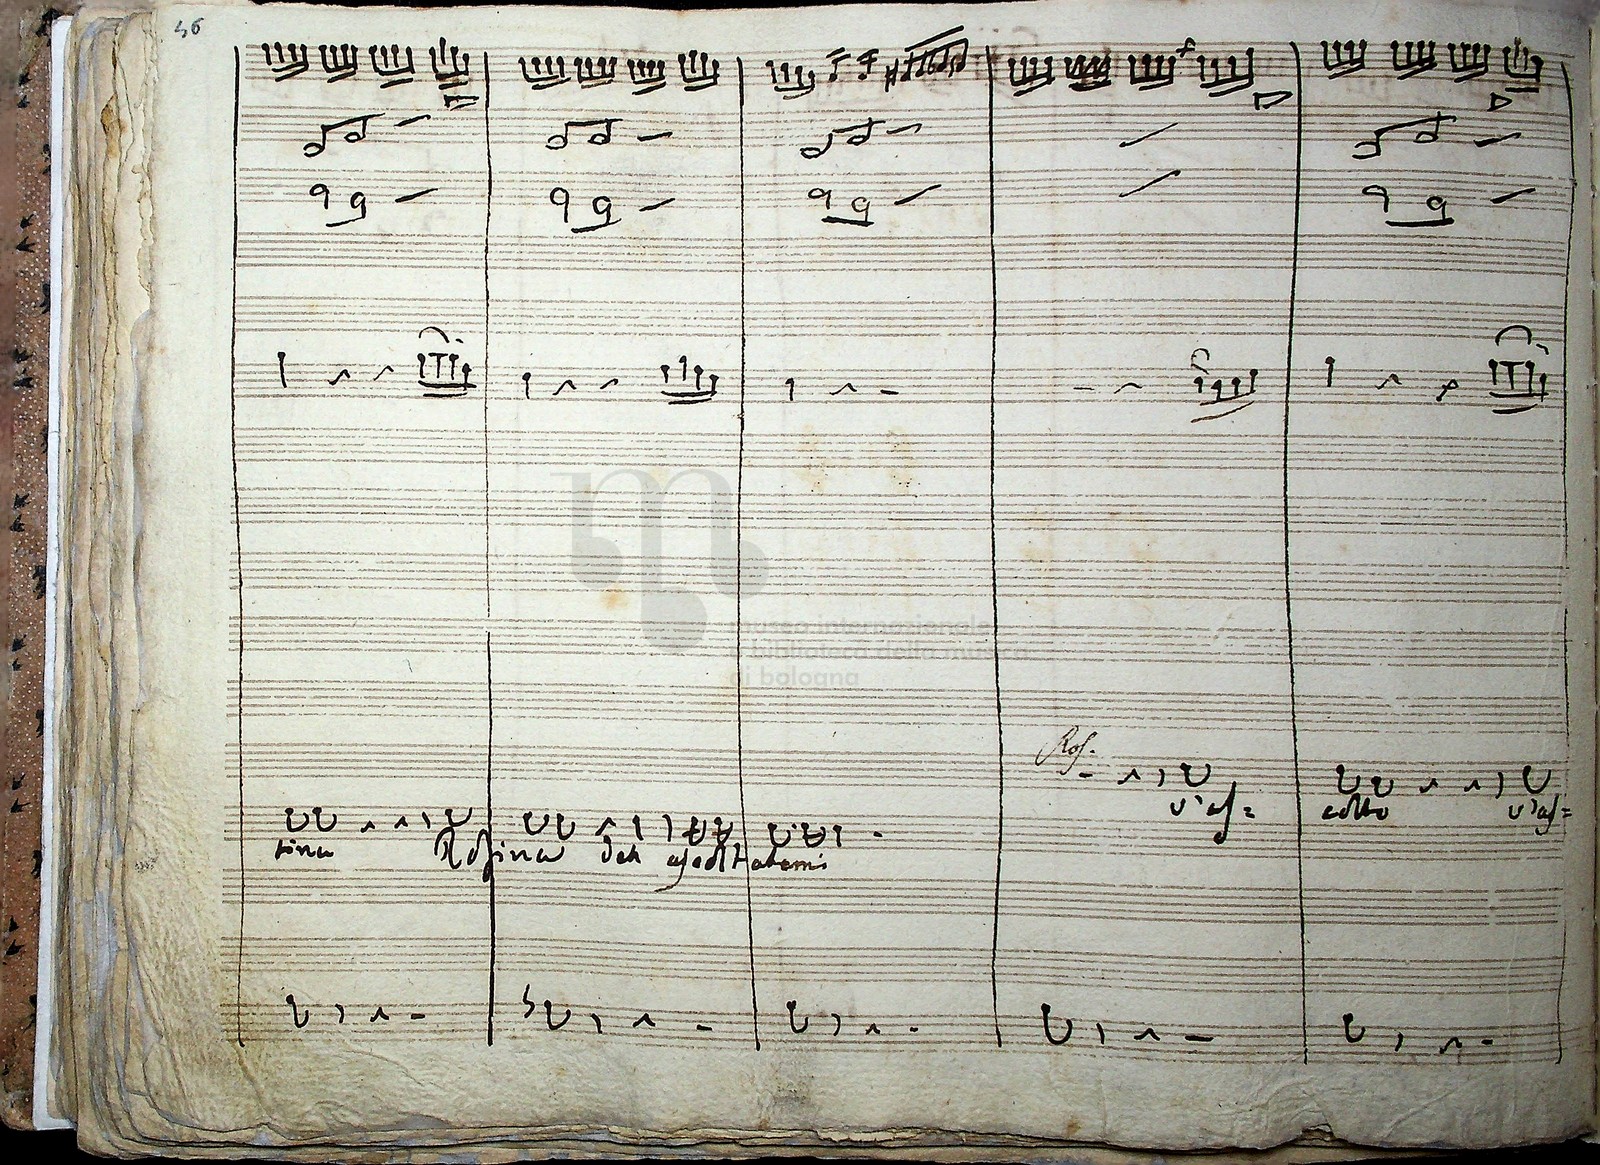 46
museo internazionale
e biblioteca della musica
di bologna
Ros.
v'as=
colto
v'as=
sina Rosina deh ascoltatemi